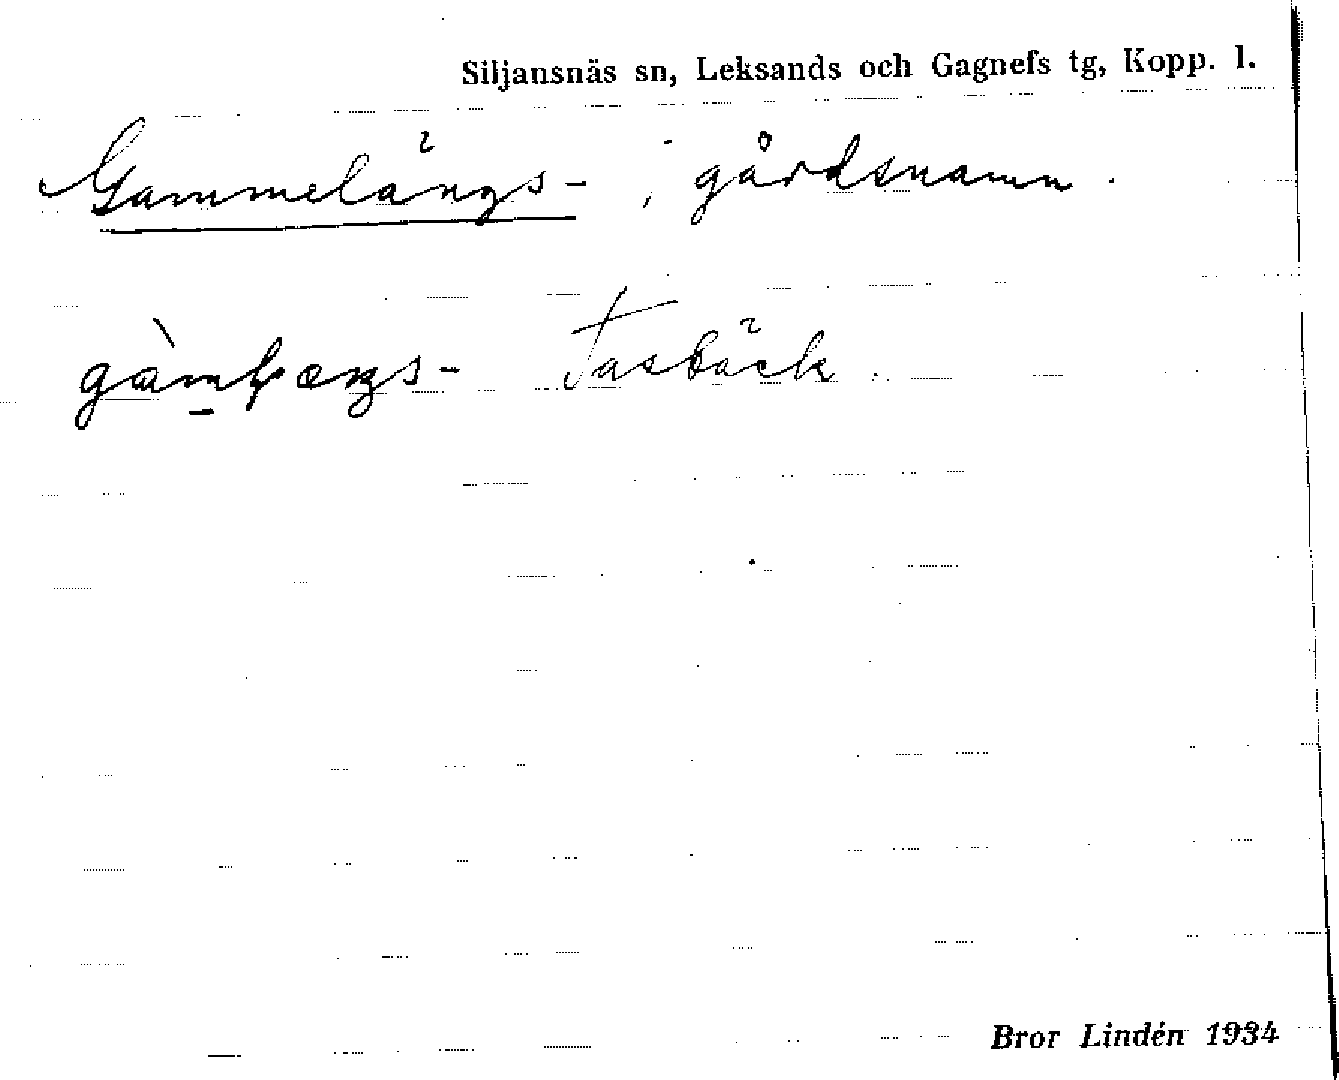 Siljansnäs sn, Leksands och Gagnefs tg, Kopp. l.
Gammelängs- i gårdsnamn.
Tasbäck.
Bror Lindén 1934